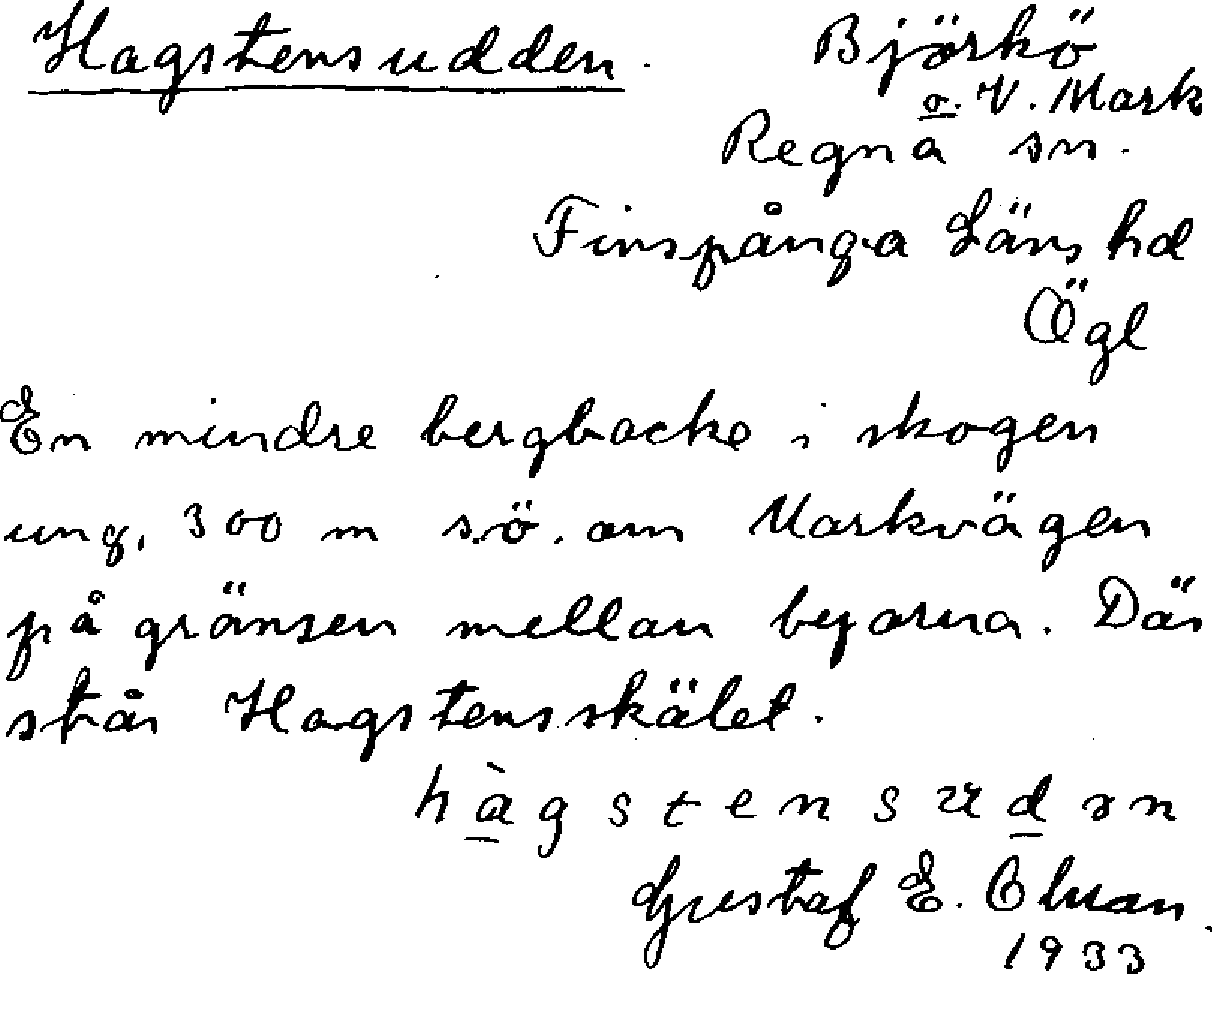 Hagstensudden. Björkö
o. V. Mark
Regna sn.
Finspånga Läns hd
Ögl
En mindre bergbacke i skogen
ung. 300 m s.ö. om Markvägen
på gränsen mellan byarna. Där
står Hagstensskälet.
hàgstensudən
Gustaf E. Olman.
1933